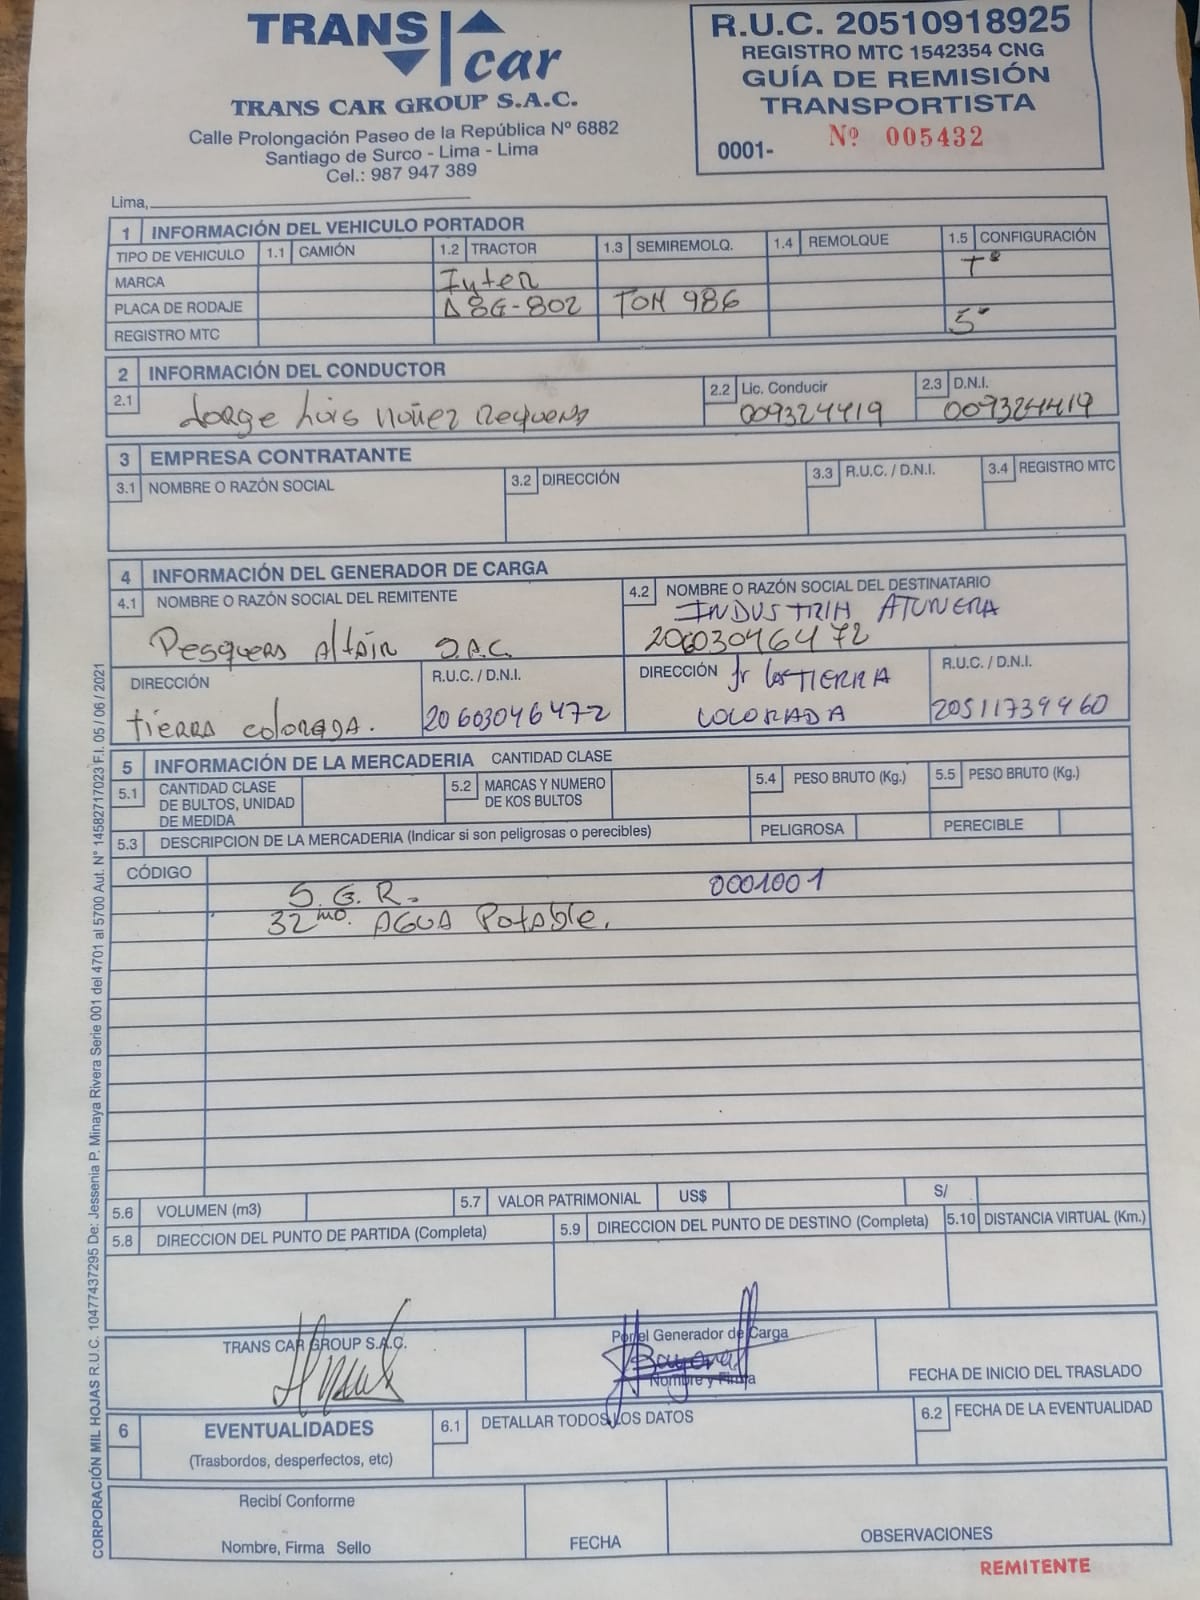 TRANS car
TRANS CAR GROUP S.A.C.
Calle Prolongación Paseo de la República Nº 6882
Santiago de Surco - Lima - Lima
Cel.: 987 947 389
R.U.C. 20510918925
REGISTRO MTC 1542354 CNG
GUÍA DE REMISIÓN
TRANSPORTISTA
0001- Nº 005432
Lima,
1 INFORMACIÓN DEL VEHICULO PORTADOR
TIPO DE VEHICULO 1.1 CAMIÓN 1.2 TRACTOR 1.3 SEMIREMOLQ. 1.4 REMOLQUE 1.5 CONFIGURACIÓN
MARCA Inter
PLACA DE RODAJE D8G-802
REGISTRO MTC
2 INFORMACIÓN DEL CONDUCTOR
2.1 Jorge Luis Nuñez Requena 2.2 Lic. Conducir 009324419 2.3 D.N.I. 009324419
3 EMPRESA CONTRATANTE
3.1 NOMBRE O RAZÓN SOCIAL 3.2 DIRECCIÓN 3.3 R.U.C. / D.N.I. 3.4 REGISTRO MTC
4 INFORMACIÓN DEL GENERADOR DE CARGA
4.1 NOMBRE O RAZÓN SOCIAL DEL REMITENTE 4.2 NOMBRE O RAZÓN SOCIAL DEL DESTINATARIO
INDUSTRIA ATUNERA
Pesquera Altair S.A.C. 20603046472
DIRECCIÓN R.U.C. / D.N.I. DIRECCIÓN Jr los TIERRA R.U.C. / D.N.I.
tierra colorada. 20603046472 COLORADA 20511739960
5 INFORMACIÓN DE LA MERCADERIA CANTIDAD CLASE
5.1 CANTIDAD CLASE DE BULTOS, UNIDAD DE MEDIDA 5.2 MARCAS Y NUMERO DE KOS BULTOS 5.4 PESO BRUTO (Kg.) 5.5 PESO BRUTO (Kg.)
5.3 DESCRIPCION DE LA MERCADERIA (Indicar si son peligrosas o perecibles) PELIGROSA PERECIBLE
CÓDIGO
S.G.R. 0001001
32 AGUA Potable.
5.6 VOLUMEN (m3) 5.7 VALOR PATRIMONIAL US$ S/
5.8 DIRECCION DEL PUNTO DE PARTIDA (Completa) 5.9 DIRECCION DEL PUNTO DE DESTINO (Completa) 5.10 DISTANCIA VIRTUAL (Km.)
TRANS CAR GROUP S.A.C. Por el Generador de Carga
Nombre y Firma FECHA DE INICIO DEL TRASLADO
6 EVENTUALIDADES 6.1 DETALLAR TODOS LOS DATOS 6.2 FECHA DE LA EVENTUALIDAD
(Trasbordos, desperfectos, etc)
Recibí Conforme
Nombre, Firma Sello FECHA OBSERVACIONES
REMITENTE
CORPORACIÓN MIL HOJAS R.U.C. 10477437295 De: Jessenia P. Minaya Rivera Serie 001 del 4701 al 5700 Aut. Nº 14582717023 F.I. 05 / 06 / 2021